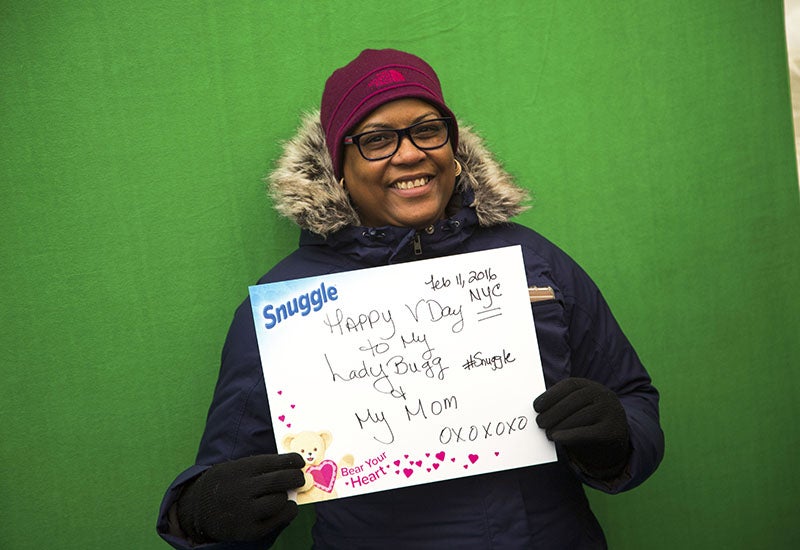 Snuggle
Feb 11, 2016
NYC
Happy V Day
to My
LadyBugg
#Snuggle
&
My Mom
OXOXOXO
Bear Your
Heart